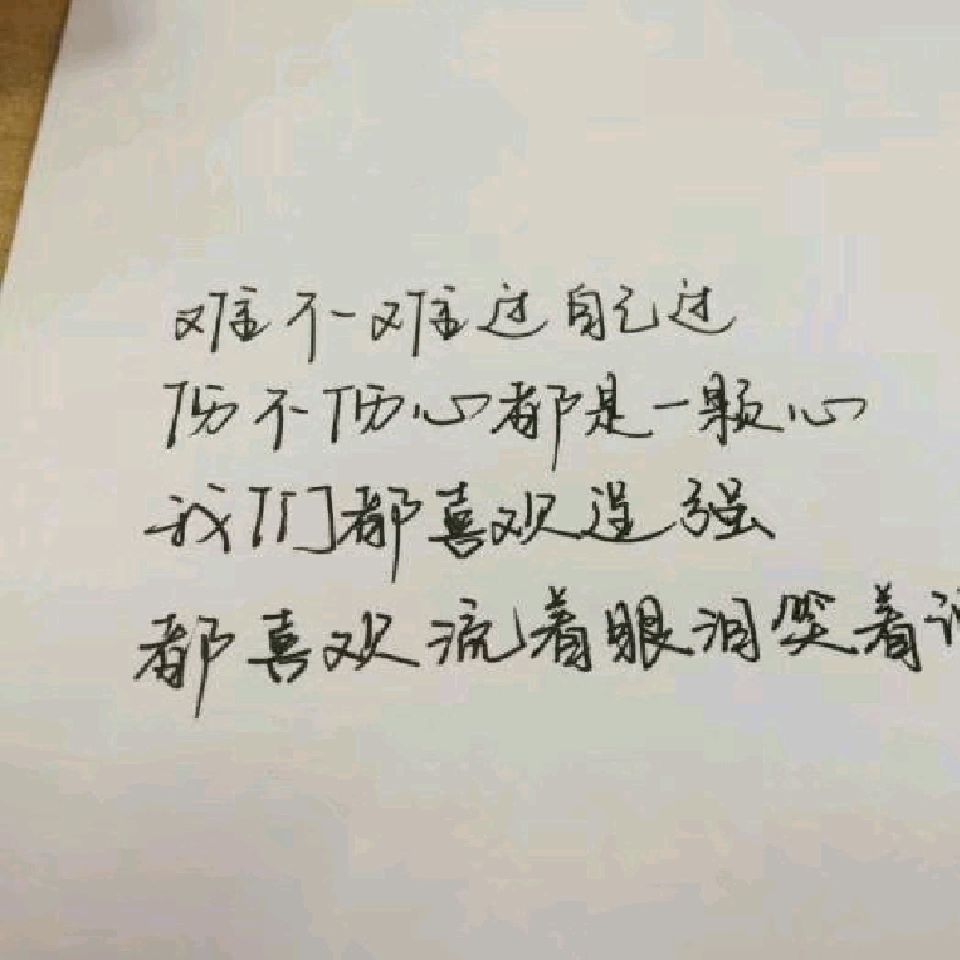 难不难过自己过
伤不伤心都是一颗心
我们都喜欢逞强
都喜欢流着眼泪笑着